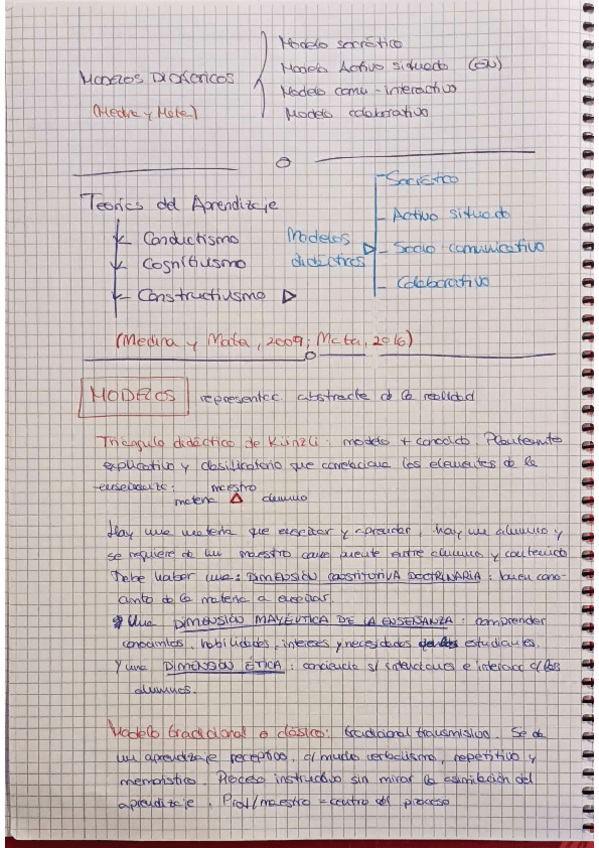 MODELOS DIDÁCTICOS
(Medina y Mata)
Modelo socrático
Modelo Activo situado
Modelo comu-interactivo
Modelo colaborativo
Teorías del Aprendizaje
Conductismo
Cognitivismo
Constructivismo
Modelos
didácticos
Socrático
Activo situado
Socio comunicativo
Colaborativo
(Medina y Mata, 2009; Mata, 2016)
MODELOS representac. abstracta de la realidad
Triángulo didáctico de Künzli: modelo + conocido. Planteamto
explicativo y clasificatorio que correlaciona los elementos de la
enseñanza:
maestro
materia △ alumno
Hay una materia que enseñar y aprender, hay un alumno y
se requiere de un maestro como puente entre alumno y contenido
Debe haber una: DIMENSIÓN CONSTITUTIVA DOCTRINARIA: buen cono-
cimto de la materia a enseñar.
Una DIMENSIÓN MAYÉUTICA DE LA ENSEÑANZA: comprender
conocimtos, habilidades, intereses y necesidades estudiantes.
Y una DIMENSIÓN ÉTICA: conciencia s/ intenciones e interacc c/los
alumnos.
Modelo tradicional o clásico: tradicional transmisivo. Se da
un aprendizaje receptivo, c/ mucho verbalismo, repetitivo y
memorístico. Proceso instructivo sin mirar la asimilación del
aprendizaje. Prof/maestro = centro del proceso